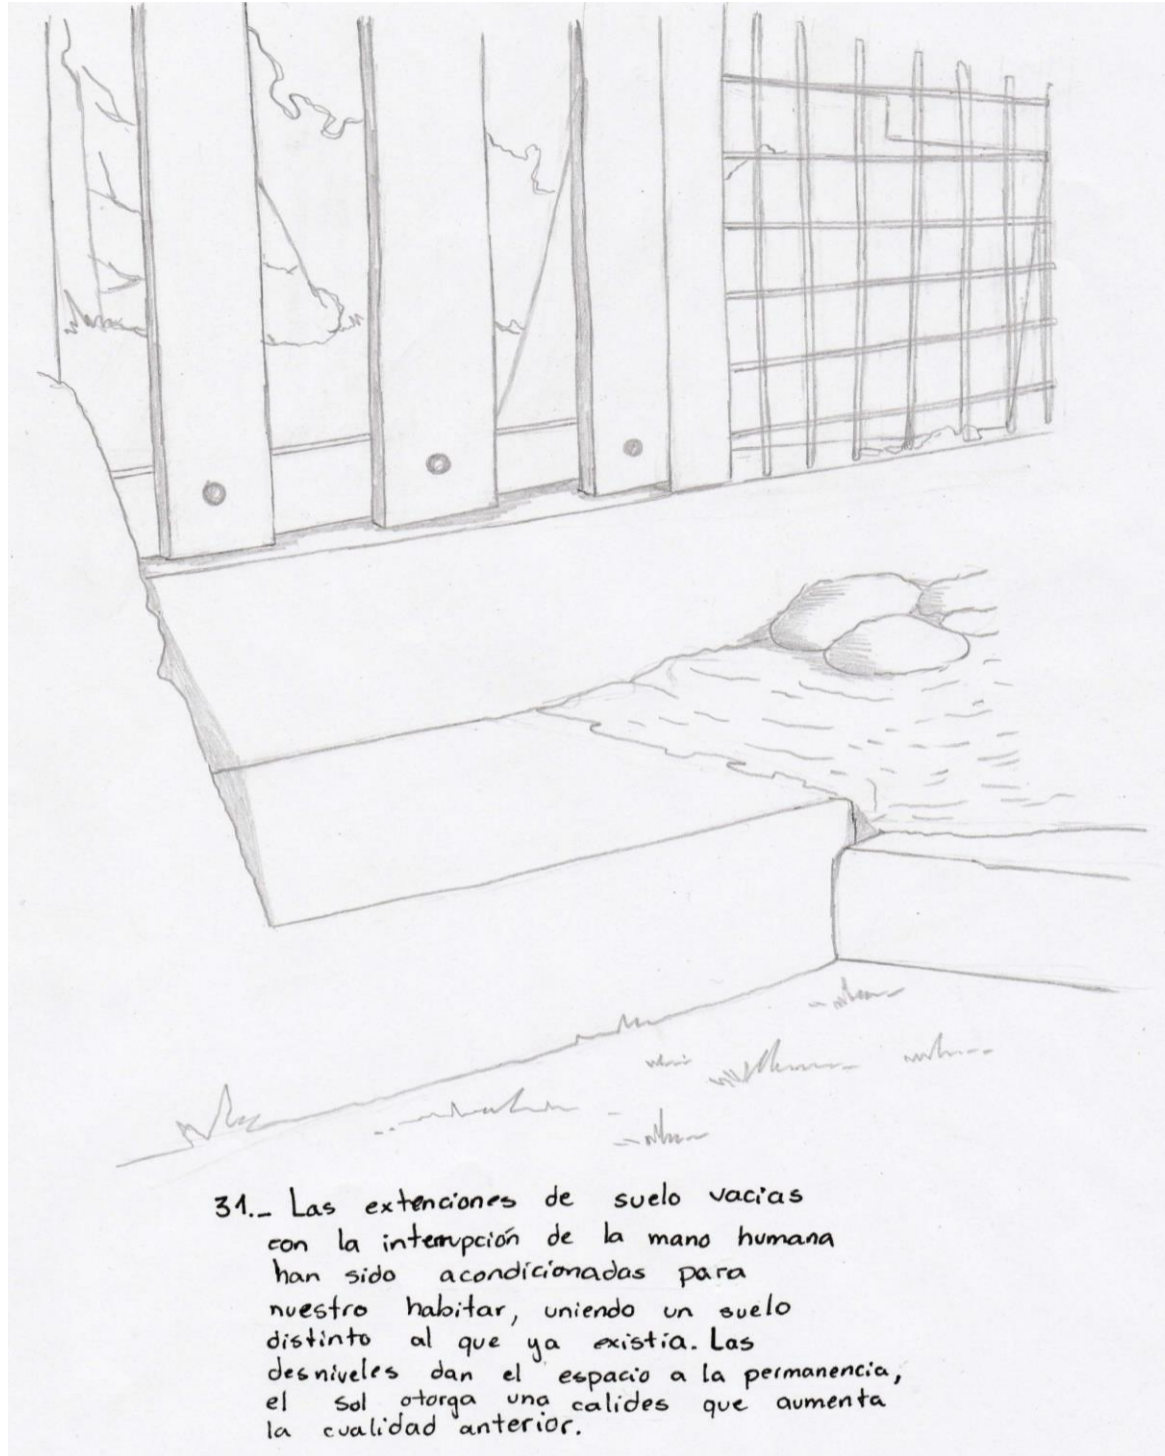 31._ Las extenciones de suelo vacias
con la interrupción de la mano humana
han sido acondicionadas para
nuestro habitar, uniendo un suelo
distinto al que ya existia. Las
desniveles dan el espacio a la permanencia,
el sol otorga una calides que aumenta
la cualidad anterior.